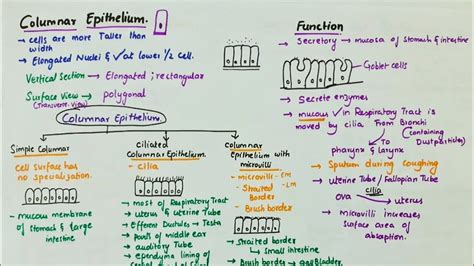 Columnar Epithelium.
→ cells are more Taller than
width
→ Elongated Nuclei & ✓ at lower 1/2 cell.
Vertical Section → Elongated ; rectangular
Surface View → polygonal
(Transverse view)
Columnar Epithelium.
Simple Columnar
→ Cell Surface has
no specialisation.
→ mucous membrane
of Stomach & large
intestine
Ciliated
Columnar Epithelium.
- cilia
→ most of Respiratory Tract
→ uterus & uterine Tube
→ Efferent Ductules - Testis
→ parts of middle ear
→ auditory Tube
→ ependyma lining of
Columnar
Epithelium with
microvilli
- microvilli - EM
- Striated - LM
Border
- Brush border
→ Striated border
↳ Small intestine
→ Brush Border → Gall Bladder
Function
→ Secretory → mucosa of Stomach & intestine
Goblet cells
→ Secrete enzymes
→ mucous ✓ in Respiratory Tract is
moved by cilia From Bronchi
To
(Containing
Dust particles)
pharynx & larynx
→ Sputum during coughing
→ uterine Tube / Fallopian Tube
cilia
OVA → uterus
→ microvilli increases
Surface area of
absorption.